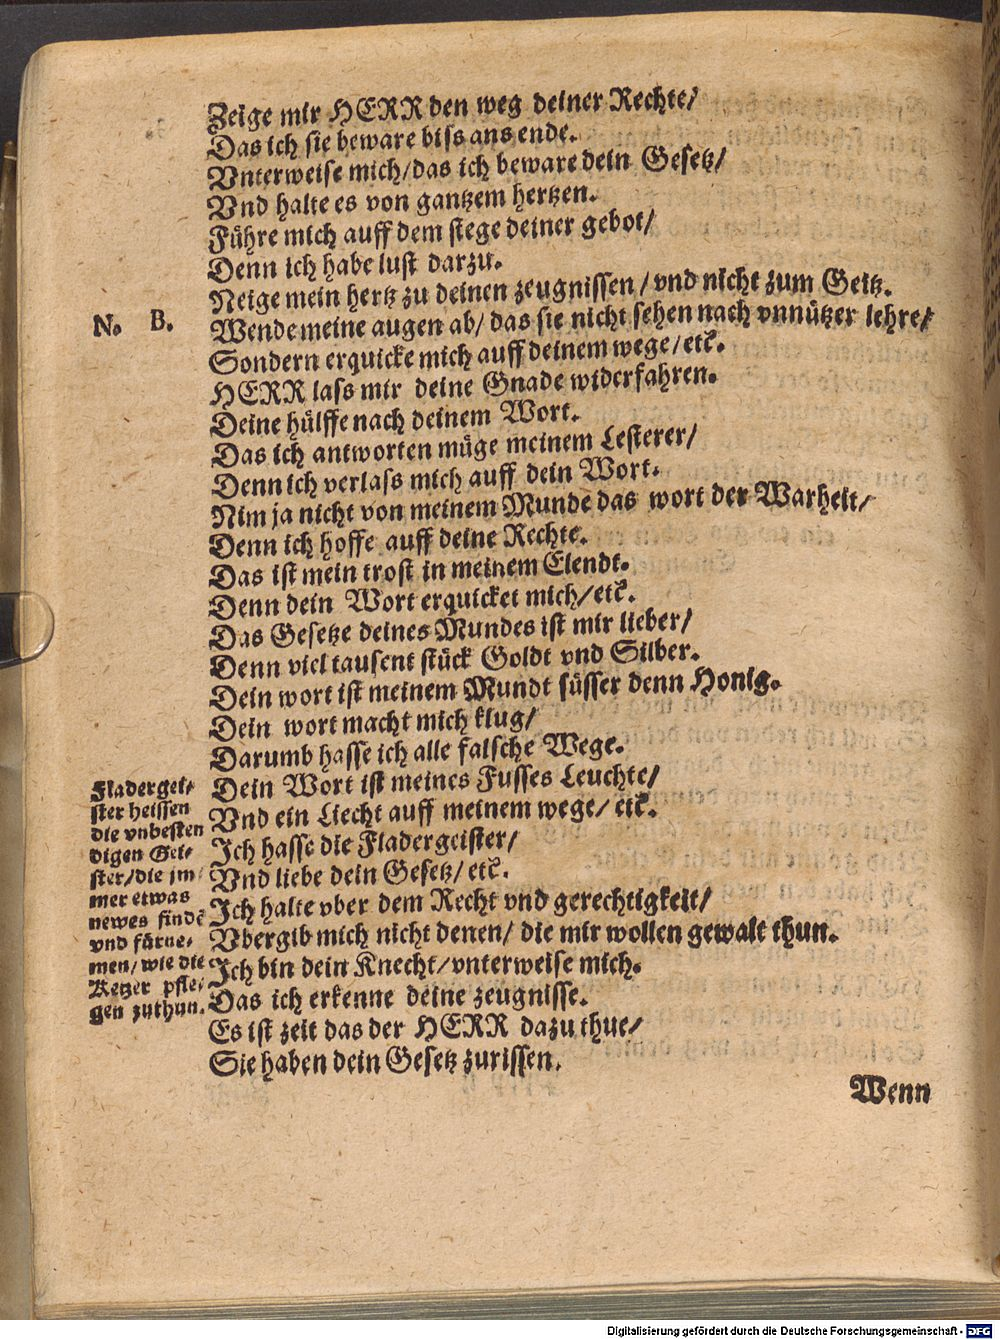 Zeige mir HERR den weg deiner Rechte/
Das ich sie beware biss ans ende.
Vnterweise mich/das ich beware dein Gesetz/
Vnd halte es von gantzem hertzen.
Führe mich auff dem stege deiner gebot/
Denn ich habe lust darzu.
Neige mein hertz zu deinen zeugnissen/vnd nicht zum Geitz.
N. B. Wende meine augen ab/das sie nicht sehen nach vnnützer lehre/
Sondern erquicke mich auff deinem wege/etc.
HERR lass mir deine Gnade widerfahren.
Deine hülffe nach deinem Wort.
Das ich antworten müge meinem Lesterer/
Denn ich verlass mich auff dein Wort.
Nim ja nicht von meinem Munde das wort der Warheit/
Denn ich hoffe auff deine Rechte.
Das ist mein trost in meinem Elendt.
Denn dein Wort erquicket mich/etc.
Das Gesetze deines Mundes ist mir lieber/
Denn viel tausent stück Goldt vnd Silber.
Dein wort ist meinem Mundt süsser denn Honig.
Dein wort macht mich klug/
Darumb hasse ich alle falsche Wege.
Dein Wort ist meines Fusses Leuchte/
Vnd ein Liecht auff meinem wege/etc.
Ich hasse die Fladergeister/
Vnd liebe dein Gesetz/etc.
Ich halte vber dem Recht vnd gerechtigkeit/
Vbergib mich nicht denen/die mir wollen gewalt thun.
Ich bin dein Knecht/vnterweise mich.
Das ich erkenne deine zeugnisse.
Es ist zeit das der HERR dazu thue/
Sie haben dein Gesetz zurissen.
Fladergei/
ster heissen
die vnbesten
digen Gei/
ster/die jm/
mer etwas
newes findē
vnd fürne/
men/wie die
Ketzer pfle/
gen zuthun.
Wenn
Digitalisierung gefördert durch die Deutsche Forschungsgemeinschaft - DFG